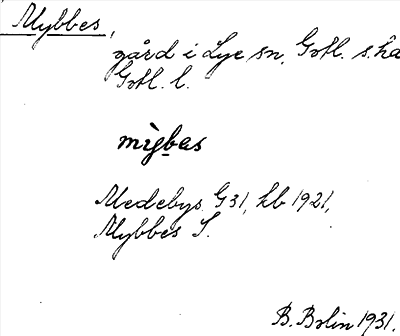 Mybbes,
gård i Lye sn, Gotl. s. hd
Gotl. l.
mỳbas
Medebys G 31, hb 1921,
Mybbes S.
B. Bolin 1931.